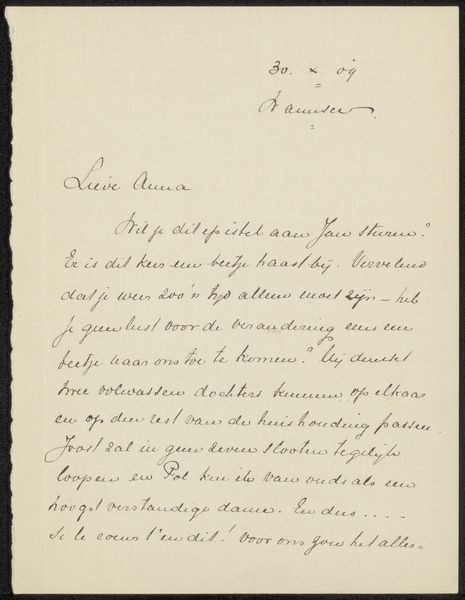 30. x. 09
Wannsee.
Lieve Anna
Wil je dit epistel aan Jan sturen?
Er is dit keer een beetje haast bij. Vervelend
dat je weer zoo'n tijd alleen moet zijn – heb
je geen lust voor de verandering eens een
beetje naar ons toe te komen? Mij dunkt
twee volwassen dochters kunnen op elkaar
en op den rest van de huishouding passen.
Joost zal in geen zeven slooten tegelijk
loopen en Pol ken ik van ouds als een
hoogst verstandige dame. En dus....
Si le coeur t'en dit! Voor ons zou het alles=